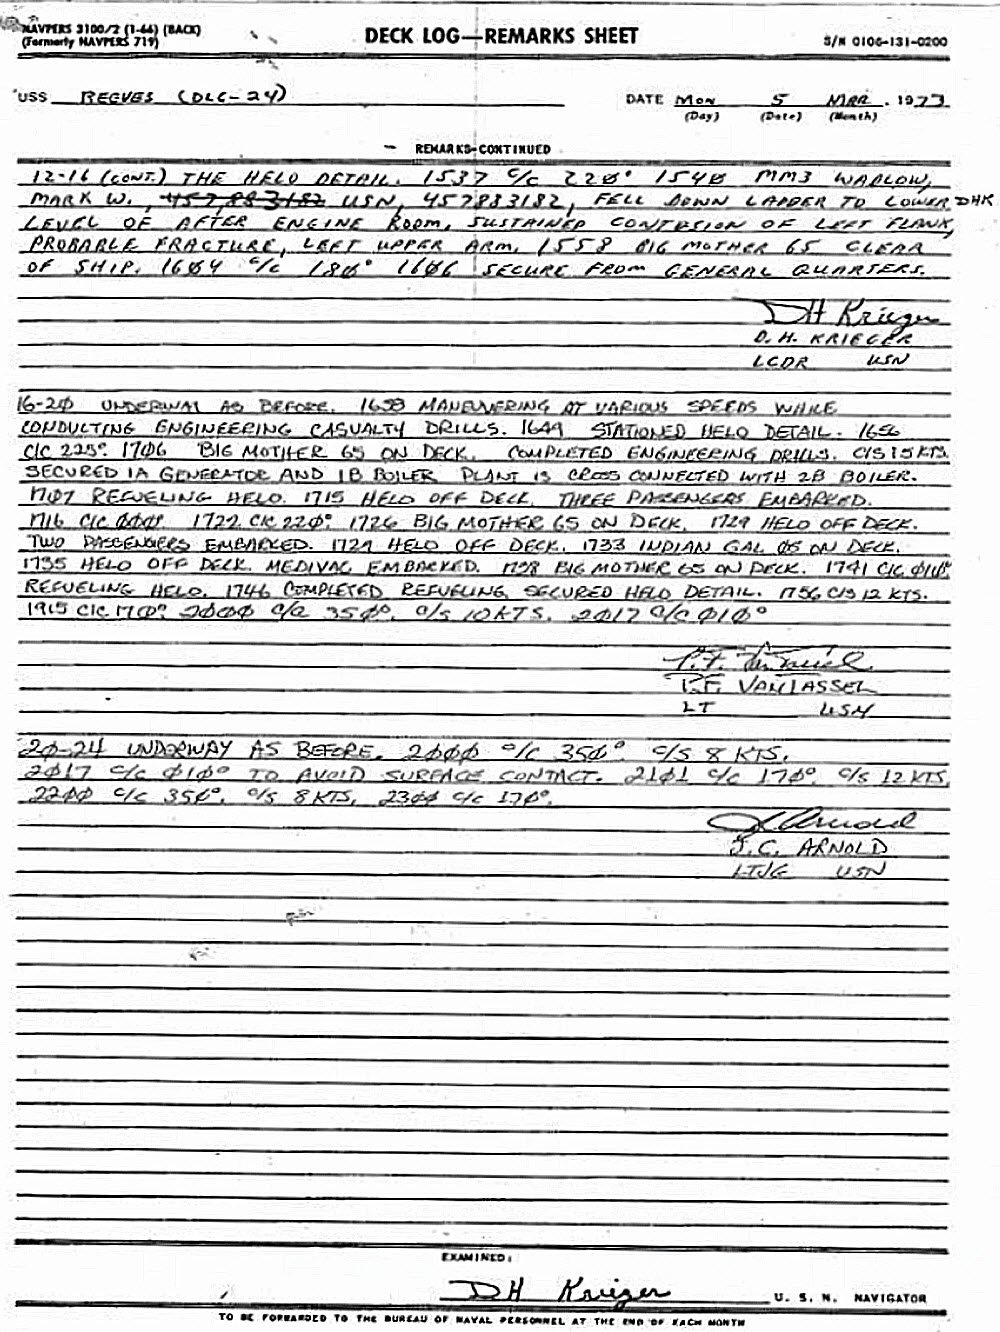 NAVPERS 3100/2 (1-66) (BACK)
(Formerly NAVPERS 719)
DECK LOG—REMARKS SHEET
S/N 0106-131-0200
USS REEVES (DLG-24)
DATE Mon 5 MAR. 1973
(Day) (Date) (Month)
REMARKS-CONTINUED
12-16 (CONT.) THE HELO DETAIL. 1537 C/C 220° 1540 MM3 WARLOW,
MARK W., 457883182 USN, 457833182, FELL DOWN LADDER TO LOWER DHK
LEVEL OF AFTER ENGINE ROOM, SUSTAINED CONTUSION OF LEFT FLANK,
PROBABLE FRACTURE, LEFT UPPER ARM. 1558 BIG MOTHER 65 CLEAR
OF SHIP. 1604 C/C 180° 1606 SECURE FROM GENERAL QUARTERS.
DH Krieger
D. H. KRIEGER
LCDR USN
16-20 UNDERWAY AS BEFORE. 1638 MANEUVERING AT VARIOUS SPEEDS WHILE
CONDUCTING ENGINEERING CASUALTY DRILLS. 1649 STATIONED HELO DETAIL. 1656
C/C 225° 1706 BIG MOTHER 65 ON DECK. COMPLETED ENGINEERING DRILLS. C/S 15 KTS.
SECURED 1A GENERATOR AND 1B BOILER. PLANT IS CROSS CONNECTED WITH 2B BOILER.
1707 REFUELING HELO. 1715 HELO OFF DECK. THREE PASSENGERS EMBARKED.
1716 C/C 000° 1722 C/C 220° 1726 BIG MOTHER 65 ON DECK. 1729 HELO OFF DECK.
TWO PASSENGERS EMBARKED. 1729 HELO OFF DECK. 1733 INDIAN GAL 05 ON DECK.
1735 HELO OFF DECK. MEDIVAC EMBARKED. 1738 BIG MOTHER 65 ON DECK. 1741 C/C 010°
REFUELING HELO. 1746 COMPLETED REFUELING, SECURED HELO DETAIL. 1756 C/S 12 KTS.
1915 C/C 170° 2000 C/C 350°. C/S 10 KTS. 2017 C/C 010°
VANTASSEL
LT USN
20-24 UNDERWAY AS BEFORE. 2000 C/C 350° C/S 8 KTS.
2017 C/C 010° TO AVOID SURFACE CONTACT. 2101 C/C 170°. C/S 12 KTS.
2200 C/C 350°. C/S 8 KTS. 2300 C/C 170°.
J C Arnold
J. C. ARNOLD
LTJG USN
EXAMINED:
DH Krieger U. S. N. NAVIGATOR
TO BE FORWARDED TO THE BUREAU OF NAVAL PERSONNEL AT THE END OF EACH MONTH